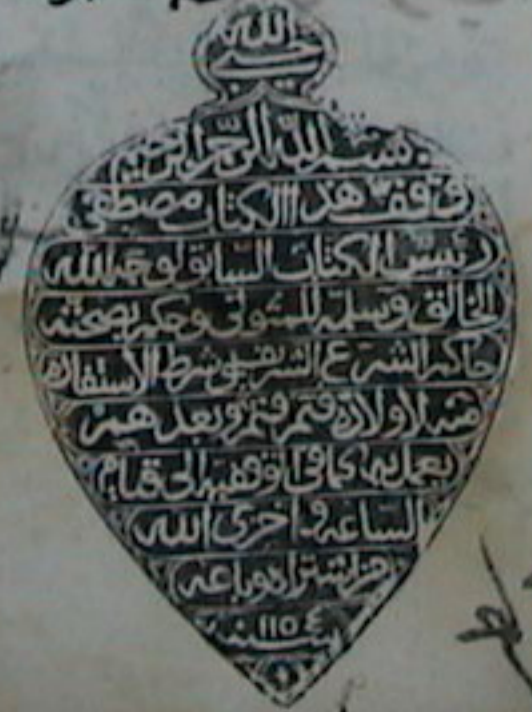 حسبي الله
بسم الله الرحمن الرحيم
وقف هذا الكتاب مصطفى
رئيس الكتاب السابق لوجه الله
الخالق وسلمه للمتولى وحكم بصحته
حاكم الشرع الشريف بشرط الاستفادة
منه لاولاده فتم فتم وبعدهم
يعمل به كما فى الوقفيه الى قيام
الساعه واخزى الله
من اشتراه وباعه
سنه ١١٥٤